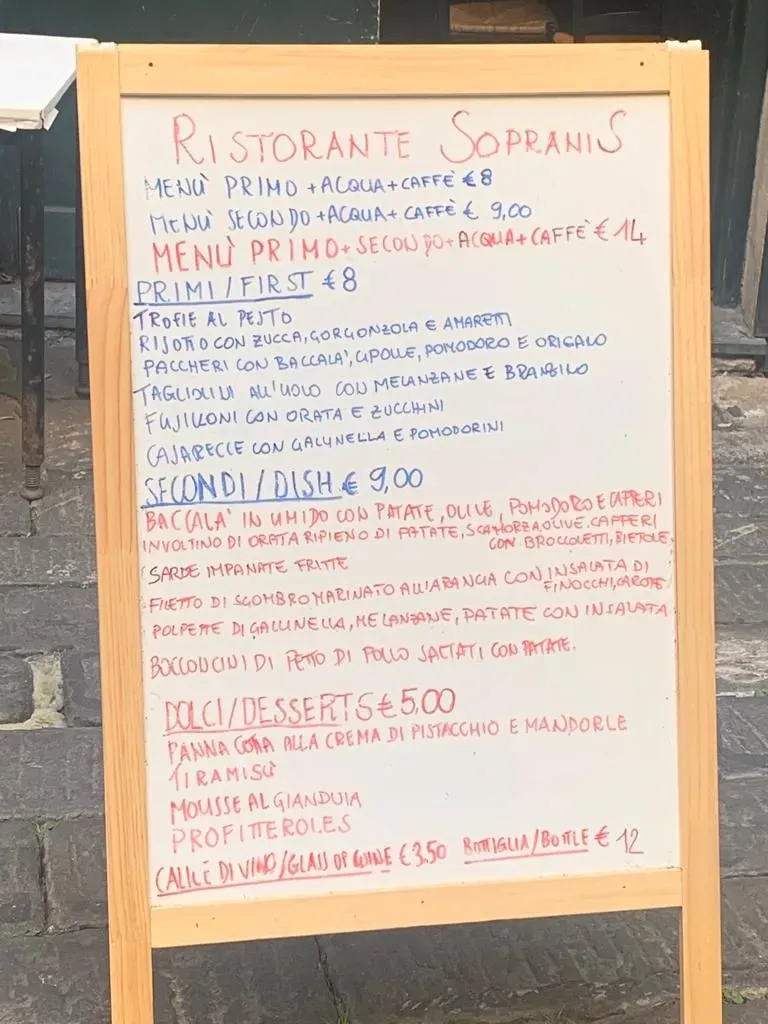 RISTORANTE SOPRANIS
MENÙ PRIMO + ACQUA + CAFFÈ € 8
MENÙ SECONDO + ACQUA + CAFFÈ € 9,00
MENÙ PRIMO + SECONDO + ACQUA + CAFFÈ € 14
PRIMI / FIRST € 8
TROFIE AL PESTO
RISOTTO CON ZUCCA, GORGONZOLA E AMARETTI
PACCHERI CON BACCALA', CIPOLLE, POMODORO E ORIGANO
TAGLIOLINI ALL'UOVO CON MELANZANE E BRANZINO
FUSILLONI CON ORATA E ZUCCHINI
CASARECCE CON GALLINELLA E POMODORINI
SECONDI / DISH € 9,00
BACCALA' IN UMIDO CON PATATE, OLIVE, POMODORO E CAPPERI
INVOLTINO DI ORATA RIPIENO DI PATATE, SCAMORZA, OLIVE, CAPPERI
CON BROCCOLETTI, BIETOLE.
SARDE IMPANATE FRITTE
FILETTO DI SGOMBRO MARINATO ALL'ARANCIA CON INSALATA DI
FINOCCHI, CAROTE
POLPETTE DI GALLINELLA, MELANZANE, PATATE CON INSALATA
BOCCONCINI DI PETTO DI POLLO SALTATI CON PATATE.
DOLCI / DESSERTS € 5,00
PANNA COTTA ALLA CREMA DI PISTACCHIO E MANDORLE
TIRAMISÙ
MOUSSE AL GIANDUIA
PROFITTEROLES
CALICE DI VINO / GLASS OF WINE € 3.50 BOTTIGLIA / BOTTLE € 12